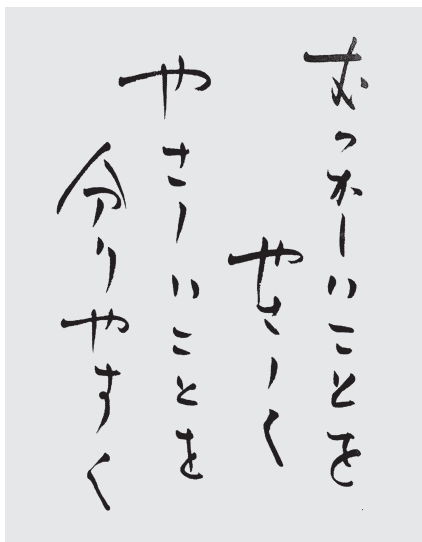 むつかしいことを
やさしく
やさしいことを
分りやすく